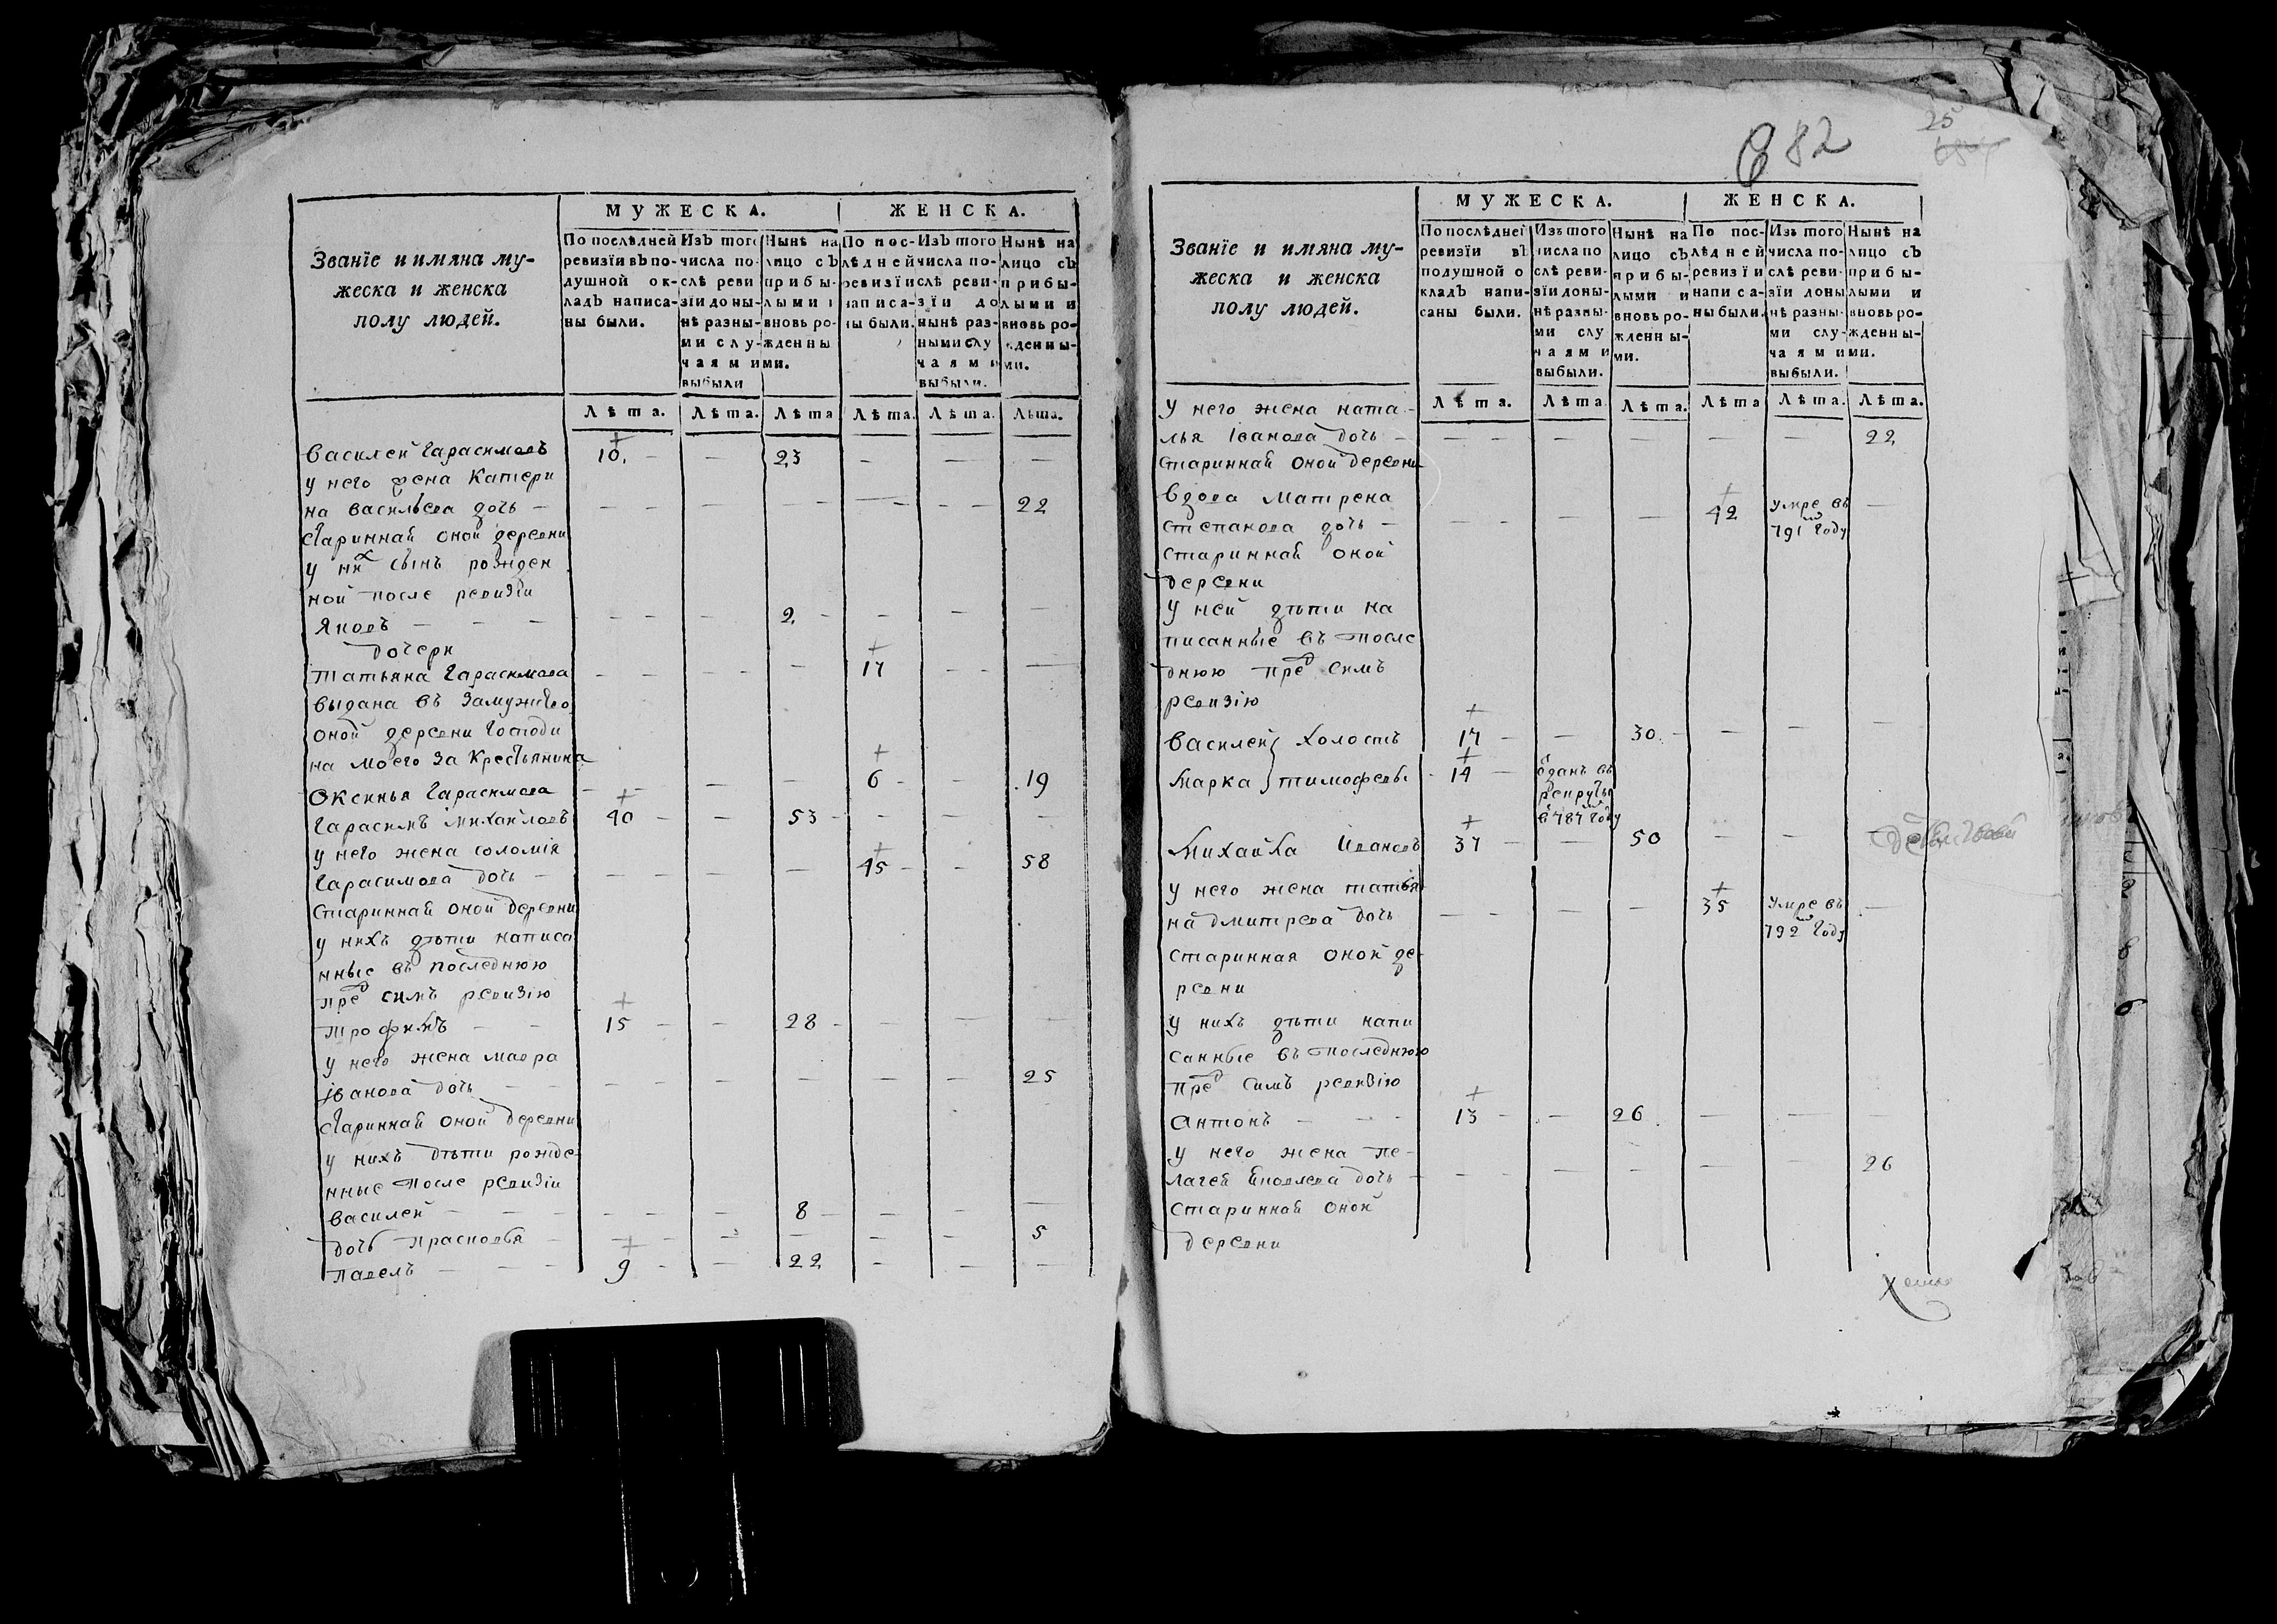 МУЖЕСКА.
ЖЕНСКА.
Званїе и имяна му-
жеска и женска
полу людей.
По послѣдней
ревизїи въ по-
душной ок-
ладъ написа-
ны были.
Изъ того
числа по-
слѣ реви
зїи доны-
нѣ разны-
ми слу-
чаями
выбыли
Нынѣ на
лицо съ
прибы-
лыми и
вновь ро-
жденны
ми.
По пос-
лѣдней
ревизїи
написа-
ны были.
Изъ того
числа по-
слѣ реви-
зїи до
нынѣ раз-
ными слу
чаями
выбыли.
Нынѣ на
лицо съ
прибы-
лыми и
вновь ро-
жденны-
ми.
Лѣта. Лѣта. Лѣта Лѣта. Лѣта. Лѣта.
Василей Гарасимовъ 10. 23
у него жена Катери
на васильева дочь 22
Стариннай оной деревни
у них сынъ рожден
ной после ревизїи
Яковъ 2
дочери
Татьяна Гарасимова 17
выдана въ замужство
оной деревни Господи
на моего за крестьянина
Оксинья Гарасимова 6 19
Гарасимъ Михайловъ 40 53
у него жена соломїя
Гарасимова дочь 45 58
Стариннай оной деревни
у нихъ дѣти написа
нные въ последнюю
пред симъ ревизїю
трофимъ 15 28
у него жена мавра
іванова дочь 25
Стариннай оной деревни
у нихъ дѣти рожде-
нные после ревизїи
василей 8
дочь прасковья 5
павелъ 9 22
682
25
МУЖЕСКА.
ЖЕНСКА.
Званїе и имяна му-
жеска и женска
полу людей.
По послѣдней
ревизїи въ
подушной о
кладъ напи-
саны были.
Изъ того
числа по
слѣ реви-
зїи доны-
нѣ разны-
ми слу
чаями
выбыли.
Нынѣ на
лицо съ
прибы-
лыми и
вновь ро-
жденны-
ми.
По пос-
лѣдней
ревизїи
написа-
ны были.
Изъ того
числа по-
слѣ реви-
зїи доны
нѣ разны-
ми слу-
чаями
выбыли.
Нынѣ на
лицо съ
прибы-
лыми и
вновь ро-
жденны-
ми.
Лѣта. Лѣта Лѣта. Лѣта Лѣта. Лѣта.
У него жена ната-
лья Іванова дочь 22
стариннай оной деревни
вдова Матрена
степанова дочь 42 умре въ
791м году
стариннай оной
деревни
У ней дѣти на
писанные въ после
днюю пред симъ
ревизїю
Василей холостъ 17 30
Марка тимофеевы 14 отданъ въ
рекруты
в 787м году
Михайла Ивановъ 37 50
у него жена татья
на дмитрева дочь 35 умре въ
792м году
старинная оной де-
ревни
у нихъ дѣти напи
санные въ последнюю
пред симъ ревизїю
Антонъ 13 26
у него жена пе-
лагея Яковлева дочь 26
стариннай оной
деревни